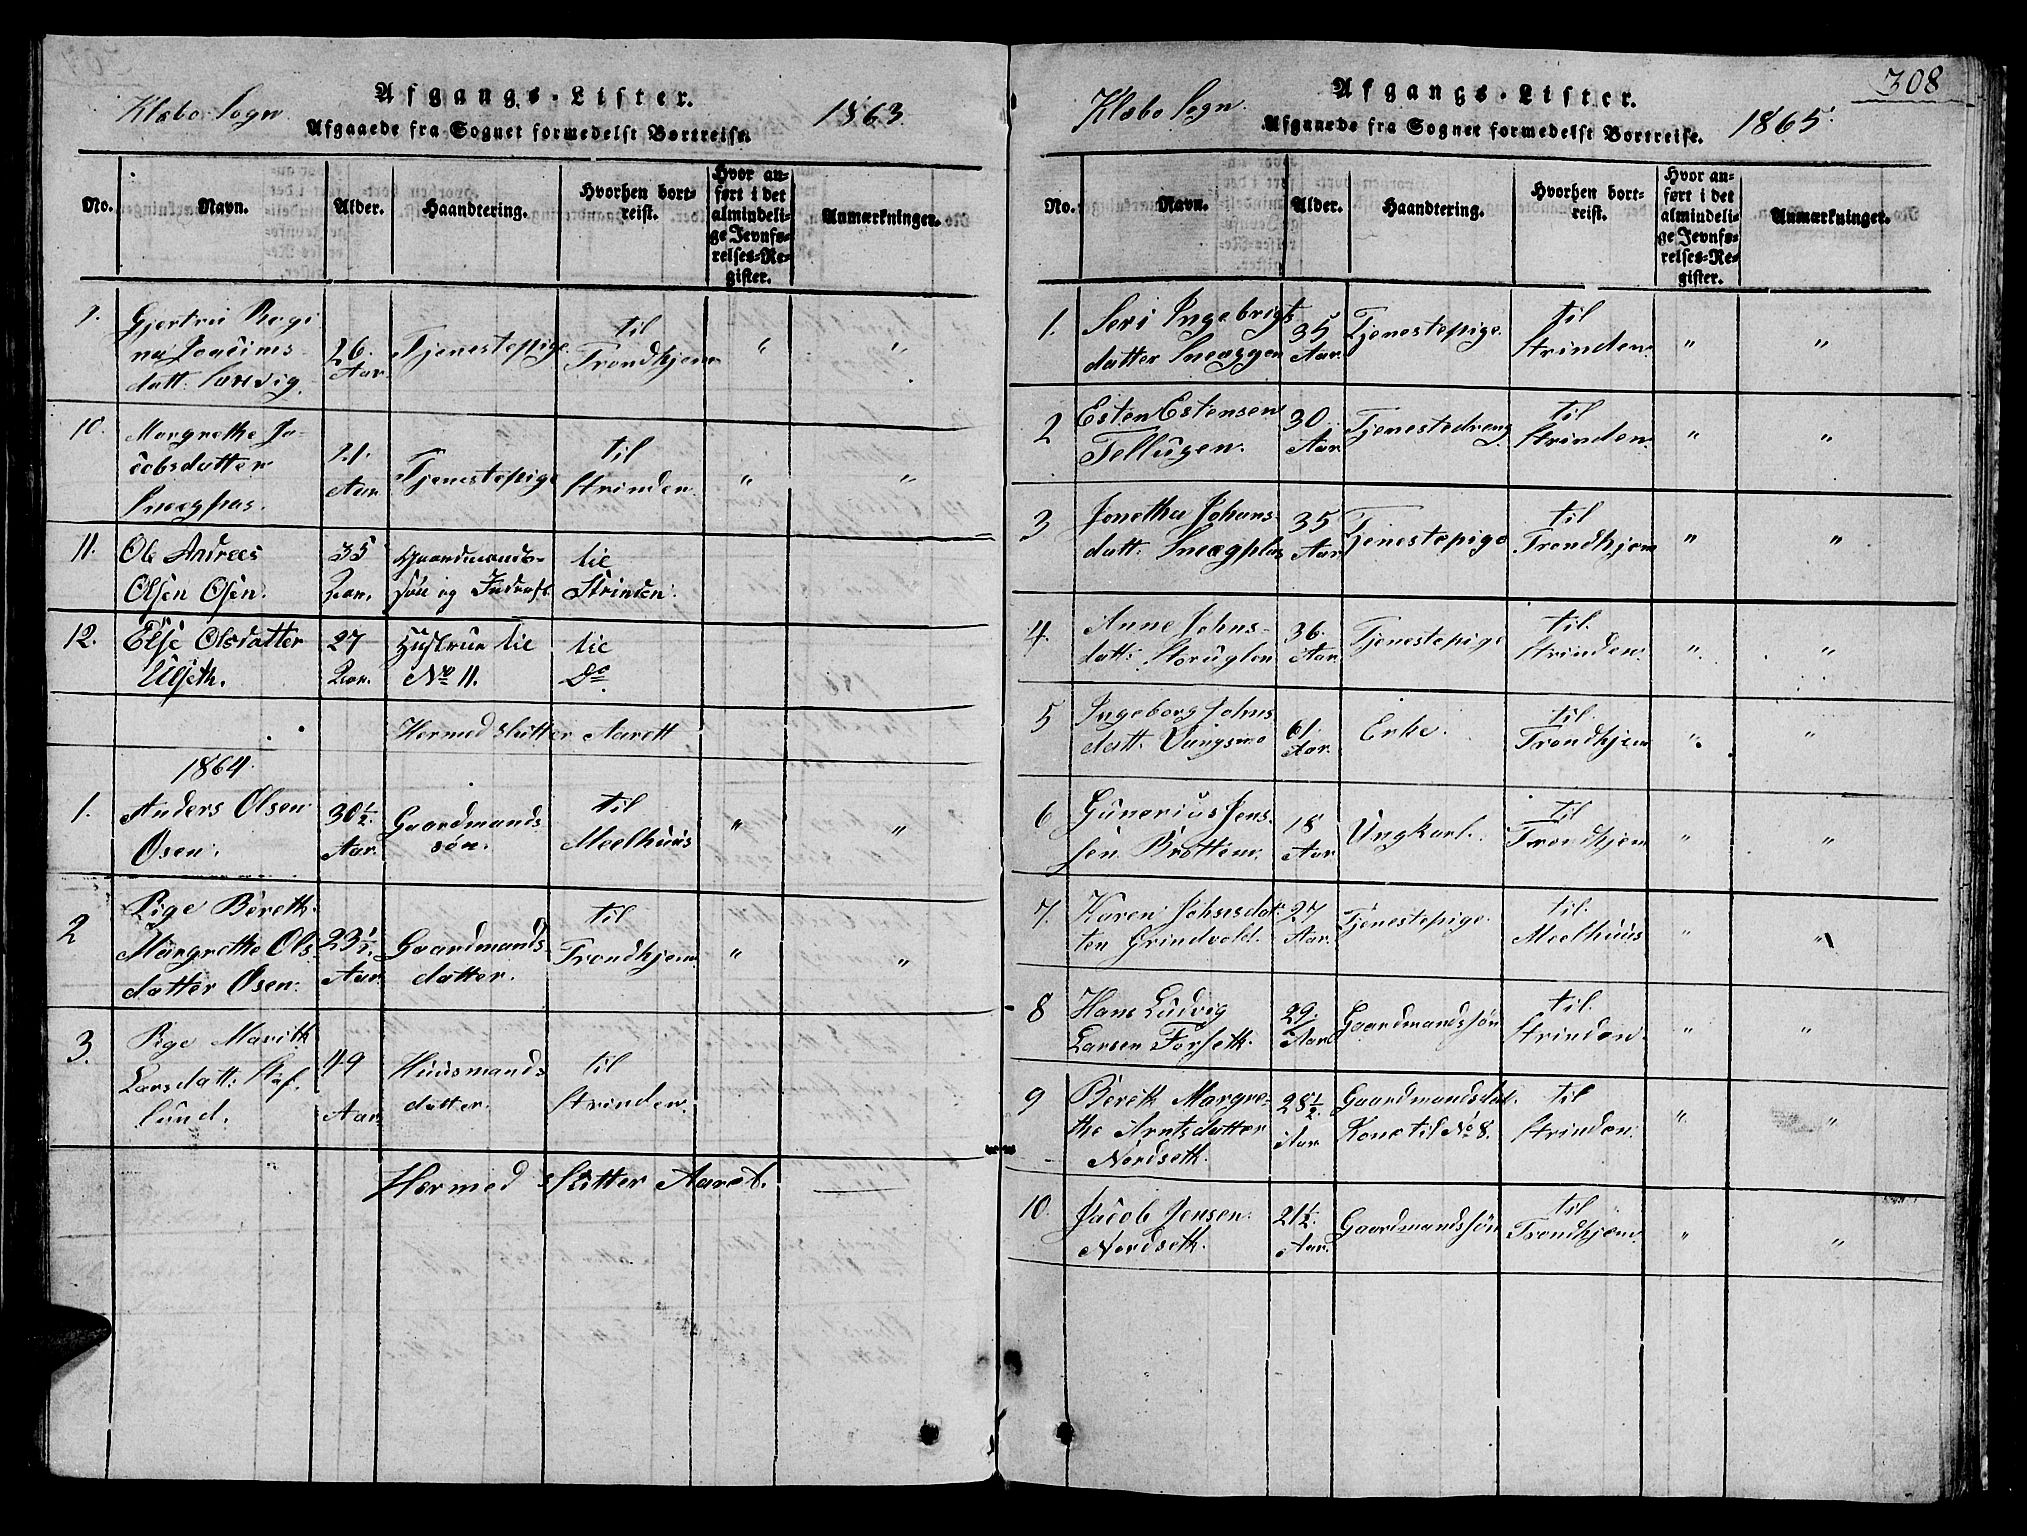 Klæbo Sogn
Afgangs-Lister.
1863.
Afgaaede fra Sognet formedelst Bortreise.
No. Navn. Alder. Haandtering. Hvorhen bortreist. Hvor anført i det almindelige Jevnførelses-Register. Anmærkninger.
9. Gjertru Regi
na Joacims
datt: 26. Aar. Tjenestepige til Trondhjem " "
10. Margrethe Ja-
cobsdatter
Sneegplas. 21. Aar Tjenestepige til Strinden " "
11. Ole Andreas
Olsen Osen. 35 Aar. Gaardmands-
søn og Inderst til Strinden.
12. Else Olsdatter
Ulseth. 27 Aar. Hustrue til
No 11. til Do
Hermed slutter Aarett
1864.
1. Anders Olsen
Osen. 30½. Aar. Gaardmands
søn. til Meelhuus " "
2 Pige Bereth
Margrethe Ols
datter Osen. 23½. Aar Gaardmands
datter. til Trondhjem " "
3. Pige Marith
Larsdatt: Staf
lund. 49 Aar. Huusmands
datter. til Strinden.
Hermed slutter Aaret.
308
Klæbo Sogn.
Afgangs-Lister.
1865.
Afgaaede fra Sognet formedelst Bortreise.
No. Navn. Alder. Haandtering. Hvorhen bortreist. Hvor anført i det almindelige Jevnførelses-Register. Anmærkninger.
1. Seri Ingebrigts
datter Sneaggen 35 Aar Tjenestepige. til Strinden " "
2 Esten Estensen
Tellugen. 30 Aar Tjenestedreng til Strinden " "
3 Jonetha Johans
datt: Sneegplas 35 Aar Tjenestepige til Trondhjem " "
4. Anne Johns-
datt: Storuglen 36. Aar Tjenestepige til Strinden " "
5 Ingeborg Johns
datt. Vangsmo 61. Aar Enke. til Trondhjem " "
6 Gunerius Jens-
sen Brøttem. 18 Aar Ungkarl. til Trondhjem " "
7. Karen Johnsdat
ten Grindvold. 27 Aar. Tjenestepige til Meelhuus " "
8 Hans Ludvig
Larsen Forseth. 29. Aar Gaardmandssøn til Strinden. " "
9 Bereth Margre-
the Arntsdatter
Nordseth. 28½. Aar Gaardmandsdat.
Kone til No 8. til Strinden. " "
10. Jacob Jensen
Nordseth. 21½. Aar. Gaardmandssøn til Trondhjem. " "